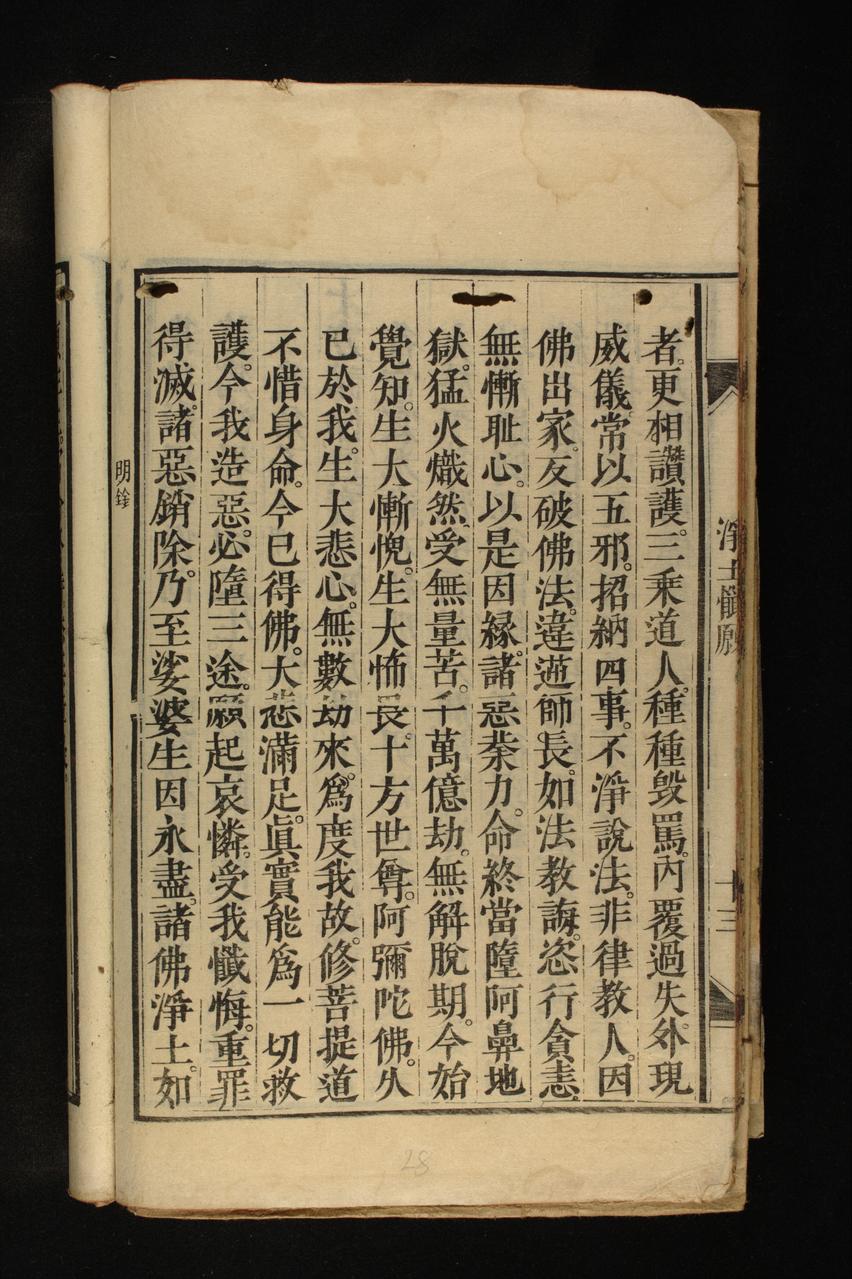 淨土懺願
十三
者。更相讚護。三乘道人。種種毁罵。內覆過失。外現
威儀。常以五邪。招納四事。不淨說法。非律教人。因
佛出家。反破佛法。違逆師長。如法教誨。恣行貪恚。
無慚耻心。以是因緣。諸惡業力。命終當墮阿鼻地
獄。猛火熾然。受無量苦。千萬億劫。無解脫期。今始
覺知。生大慚愧。生大怖畏。十方世尊。阿彌陀佛。久
已於我。生大悲心。無數劫來。爲度我故。修菩提道
不惜身命。今已得佛。大悲滿足。眞實能爲一切救
護。今我造惡。必墮三途。願起哀憐。受我懺悔。重罪
得滅。諸惡銷除。乃至娑婆生因永盡。諸佛淨土。如
明銓
28